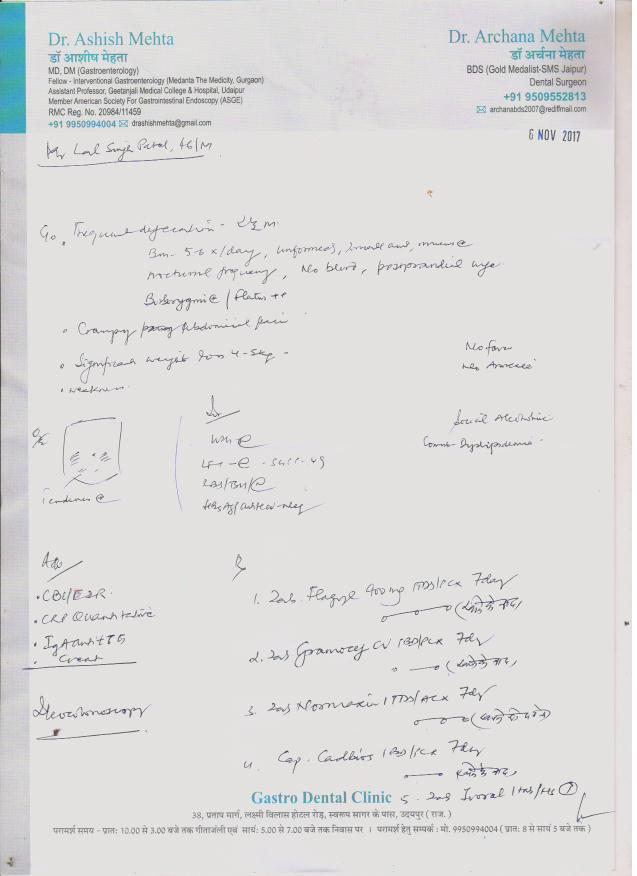 Dr. Ashish Mehta
डॉ आशीष मेहता
MD, DM (Gastroenterology)
Fellow - Interventional Gastroenterology (Medanta The Medicity, Gurgaon)
Assistant Professor, Geetanjali Medical College & Hospital, Udaipur
Member American Society For Gastrointestinal Endoscopy (ASGE)
RMC Reg. No. 20984/11459
+91 9950994004 drashishmehta@gmail.com
Dr. Archana Mehta
डॉ अर्चना मेहता
BDS (Gold Medalist-SMS Jaipur)
Dental Surgeon
+91 9509552813
archanabds2007@rediffmail.com
6 NOV 2017
Mr Lal Singh 46/M
Frequent defecation -
5-6 x/day, unformed, small amt, mucus
nocturnal frequency, No blood, postprandial urge
Borborygmi / Flatus ++
Crampy Abdominal pain
Significant weight loss 4-5kg -
weakness
No fever
Social Alcoholic
O/E
Tenderness
Adv
CBC/ESR
CRP Quantitative
IgA anti tTG
Creat
Ileocolonoscopy
1. Tab Flagyl 400mg 1TDS 7day
(खाने के बाद)
2. Tab CV 1BD 7day
(खाने के बाद)
3. Tab Normaxin 1TDS 7day
4. Cap. 1BD 7day
खाने के बाद
5. Tab
Gastro Dental Clinic
38, प्रताप मार्ग, लक्ष्मी विलास होटल रोड़, स्वरूप सागर के पास, उदयपुर ( राज. )
परामर्श समय - प्रातः 10.00 से 3.00 बजे तक गीतांजली एवं सायं: 5.00 से 7.00 बजे तक निवास पर । परामर्श हेतु सम्पर्क : मो. 9950994004 ( प्रातः 8 से सायं 5 बजे तक )